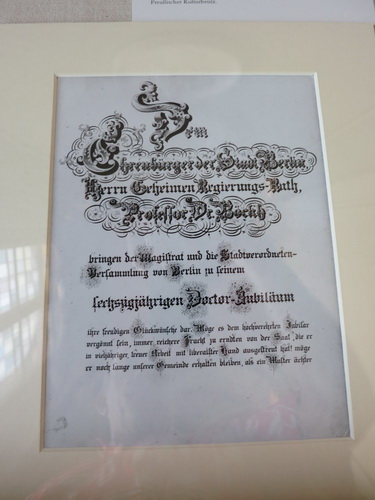 Preußischer Kulturbesitz.
Dem
Ehrenbürger der Stadt Berlin
Herrn Geheimen Regierungs-Rath,
Professor Dr. Böckh
bringen der Magistrat und die Stadtverordneten-
Versammlung von Berlin zu seinem
sechszigjährigen Doctor-Jubiläum
ihre freudigen Glückwünsche dar. Möge es dem hochverehrten Jubilar
vergönnt sein, immer reichere Frucht zu erndten von der Saat, die er
in vieljähriger, treuer Arbeit mit liberalster Hand ausgestreut hat! möge
er noch lange unserer Gemeinde erhalten bleiben, als ein Muster ächter